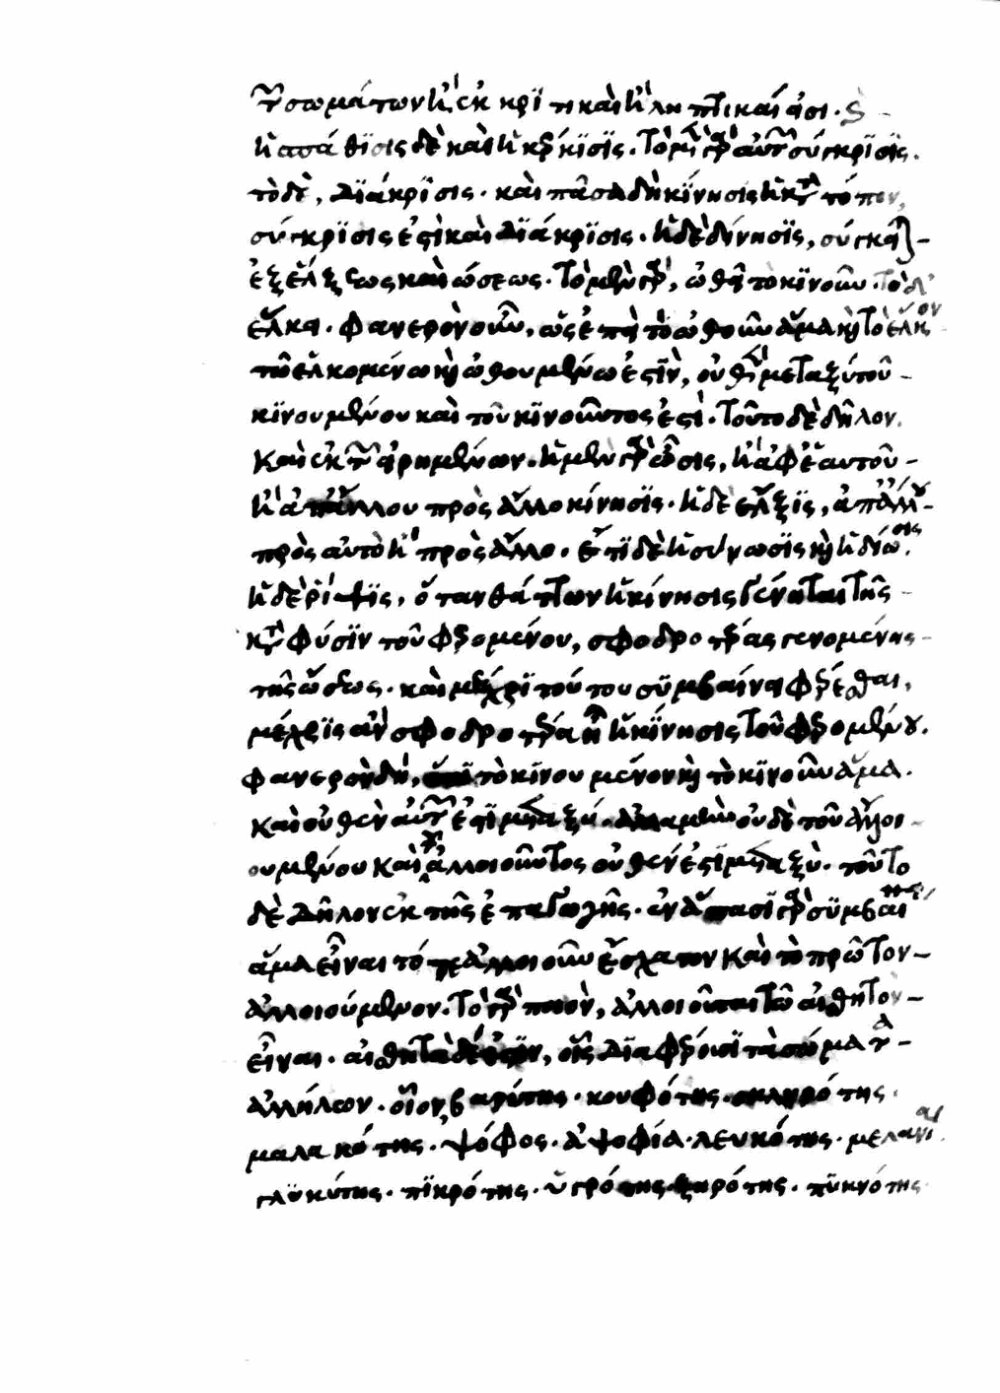 τῶν σωμάτων ἢ ἐκκριτικαὶ ἢ ληπτικαί εἰσι· καὶ
ἡ σπάθισις δὲ καὶ ἡ κέρκισις. τὸ μὲν γὰρ αὐτῶν σύγκρισις.
τὸ δὲ, διάκρισις. καὶ πᾶσα δὴ κίνησις ἡ κατὰ τόπον,
σύγκρισις ἐστὶ καὶ διάκρισις. ἡ δὲ δίνησις, σύγκειται
ἐξ ἕλξεως καὶ ὤσεως. τὸ μὲν γὰρ, ὠθεῖ τὸ κινοῦν. τὸ δ'
ἕλκει. φανερὸν οὖν, ὡς ἐπεὶ τὸ ὠθοῦν ἅμα καὶ τὸ ἕλκον
τῶ ἑλκομένω καὶ ὠθουμένω ἐστὶν, οὐθὲν μεταξὺ τοῦ
κινουμένου καὶ τοῦ κινοῦντος ἐστί. τοῦτο δὲ δῆλον
καὶ ἐκ τῶν εἰρημένων. ἡ μὲν γὰρ ὦσις, ἢ ἀφ' ἑαυτοῦ
ἢ ἀπ' ἄλλου πρὸς ἄλλο κίνησις. ἡ δὲ ἕλξις, ἀπ' ἄλλου
πρὸς αὐτὸ ἢ πρὸς ἄλλο. ἔτι δὲ ἡ σύνωσις καὶ ἡ δίωσις.
ἡ δὲ ῥίψις, ὅταν θάττων ἡ κίνησις γένηται τῆς
κατὰ φύσιν τοῦ φερομένου, σφοδροτέρας γενομένης
τῆς ὤσεως. καὶ μέχρι τούτου συμβαίνει φέρεσθαι,
μέχρις ἂν σφοδροτέρα ἦ ἡ κίνησις τοῦ φερομένου.
φανερὸν δὴ, ὅτι τὸ κινούμενον καὶ τὸ κινοῦν ἅμα.
καὶ οὐθὲν αὐτῶν ἐστὶ μεταξύ. ἀλλὰ μὴν οὐδὲ τοῦ ἀλλοι
ουμένου καὶ τοῦ ἀλλοιοῦντος οὐθέν ἐστι μεταξὺ. τοῦτο
δὲ δῆλον ἐκ τῆς ἐπαγωγῆς. ἐν ἅπασι γὰρ συμβαίνει
ἅμα εἶναι τό τε ἀλλοιοῦν ἔσχατον καὶ τὸ πρῶτον
ἀλλοιούμενον. τὸ γὰρ ποιὸν, ἀλλοιοῦται τῶ αἰσθητὸν
εἶναι. αἰσθητὰ δέ ἐστιν, οἷς διαφέρουσι τὰ σώματα
ἀλλήλων. οἷον, βαρύτης. κουφότης. σκληρότης.
μαλακότης. ψόφος. ἀψοφία. λευκότης. μελανία.
γλυκύτης. πικρότης. ὑγρότης. ξηρότης. πυκνότης